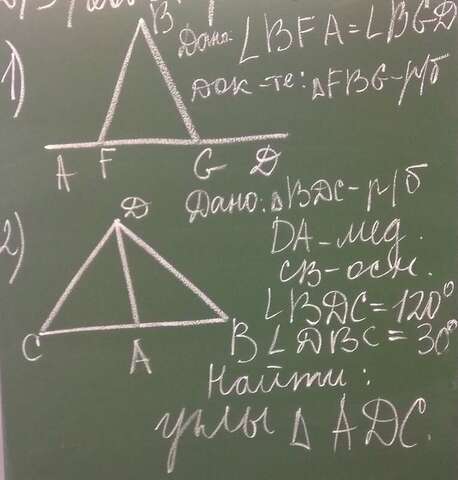 1)
B
Дано: ∠BFA = ∠BGD
Док-те: △FBG - р/б
A F G D
2)
D
Дано: △BDC - р/б
DA - мед.
CB - осн.
∠BDC = 120°
C A B
∠DBC = 30°
Найти:
углы △ADC.